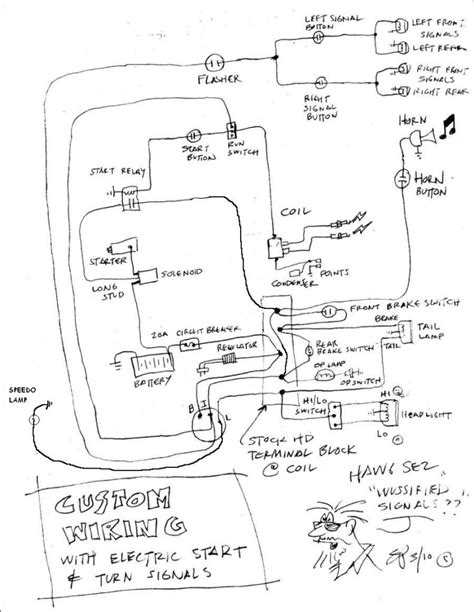 LEFT SIGNAL
BUTTON
LEFT FRONT
SIGNALS
LEFT REAR
FLASHER
RIGHT FRONT
SIGNALS
RIGHT REAR
RIGHT
SIGNAL
BUTTON
HORN
START
BUTTON
RUN
SWITCH
START RELAY
HORN
BUTTON
COIL
STARTER
SOLENOID
LONG
STUD
CONDENSER
POINTS
FRONT BRAKE SWITCH
BRAKE
20A CIRCUIT BREAKER
REAR
BRAKE SWITCH
TAIL
LAMP
TAIL
REGULATOR
OP LAMP
OP SWITCH
BATTERY
SPEEDO
LAMP
B
I
L
HI/LO
SWITCH
HI
HEADLIGHT
LO
STOCK HD
TERMINAL BLOCK
@ COIL
HAWG SEZ
"WUSSIFIED
SIGNALS??
CUSTOM
WIRING
WITH ELECTRIC START
& TURN SIGNALS
3/10 ©